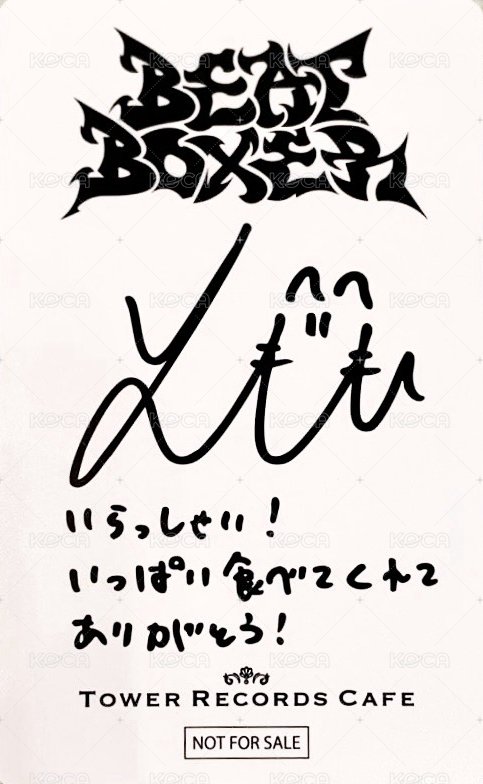 BEAT
BOXER
いらっしゃい!
いっぱい食べてくれて
ありがとう!
TOWER RECORDS CAFE
NOT FOR SALE